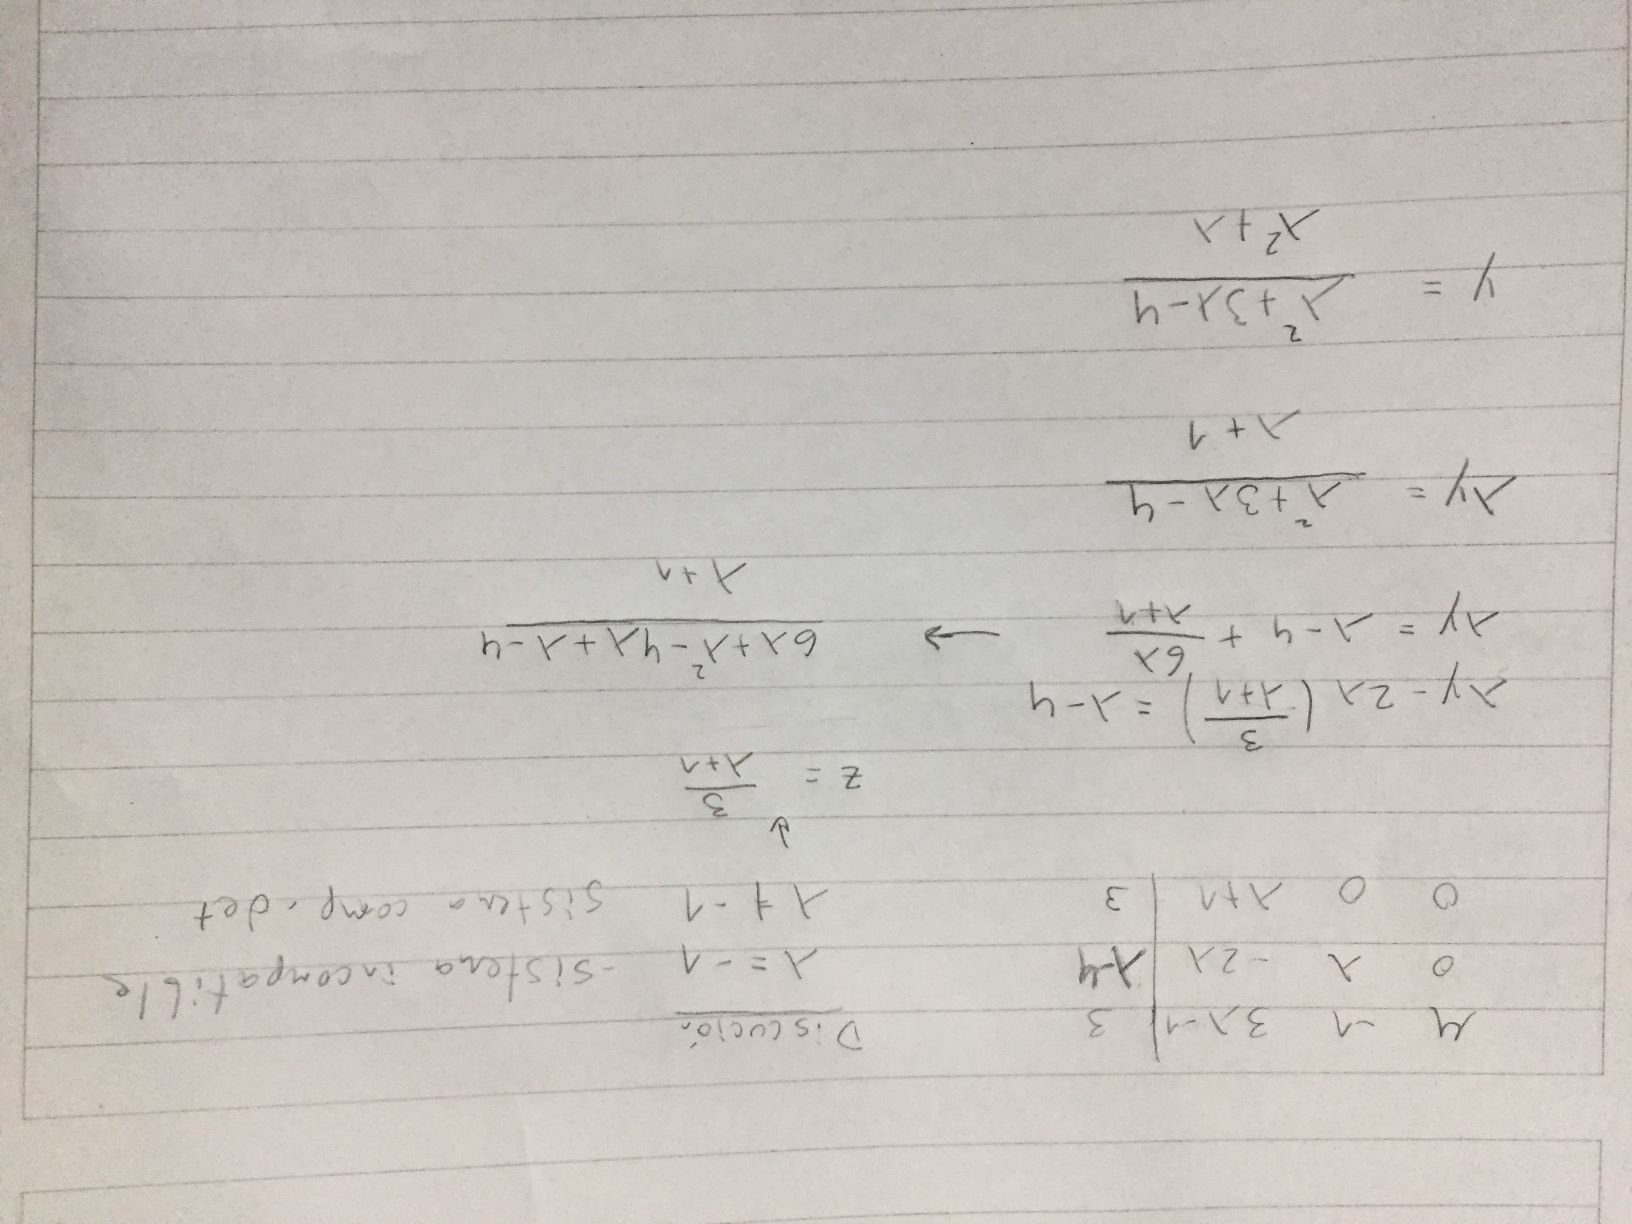 4 -1 3λ-1 | 3
0 λ -2λ | λ-4
0 0 λ+1 | 3
Discución
λ = -1 -sistema incompatible
λ ≠ -1 sistema comp. det
↓
z = 3/(λ+1)
λy - 2λ (3/(λ+1)) = λ-4
λy = λ-4 + 6λ/(λ+1) → (6λ+λ²-4λ+λ-4)/(λ+1)
λy = (λ²+3λ-4)/(λ+1)
y = (λ²+3λ-4)/(λ²+λ)